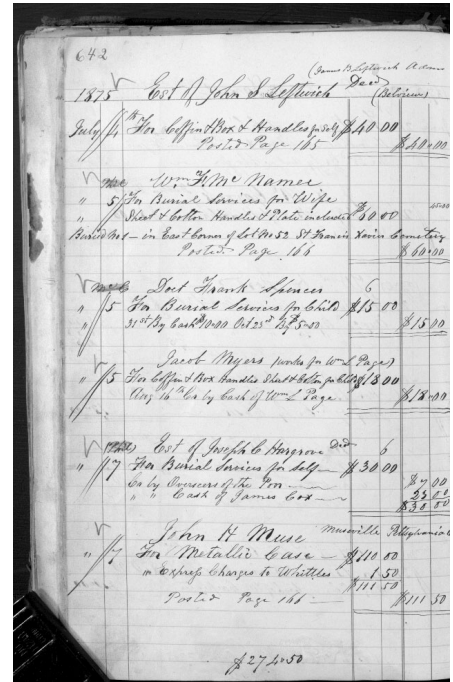 642
(James B Leftwich Adm
1875 Est of John S Leftwich Decd (Belview)
July 4th For Coffin & Box & Handles for Self $40.00
Posted Page 165 $40.00
Wm F. McNamee
" 5 For Burial Services for Wife
Sheet & Cotton Handles & Plate included $60 00
Buried No 1 — in East Corner of Lot No 52 St Francis Xavier Cemetery
Posted Page 166 $60.00
Doct Frank Spencer 6
" 5 For Burial Services for Child $15 00
" 31st By Cash $10.00 Oct 23d By $5.00 $15 00
Jacob Myers (works for Wm L Page)
" 5 For Coffin & Box Handles Sheet & Cotton for Child $18 00
Aug 14th Cr by Cash of Wm L Page $18.00
Est of Joseph C Hargrove Decd 6
" 7 For Burial Services for Self — $30 00
Cr by Overseers of the Poor — $7 00
" " Cash of James Cox — 23 00
$30 00
John H Muse Museville Pittsylvania
" 7 For Metallic Case — $110 00
" Express Charges to Whittles 1 50
$111 50
Posted Page 166 — $111 50
$274.50